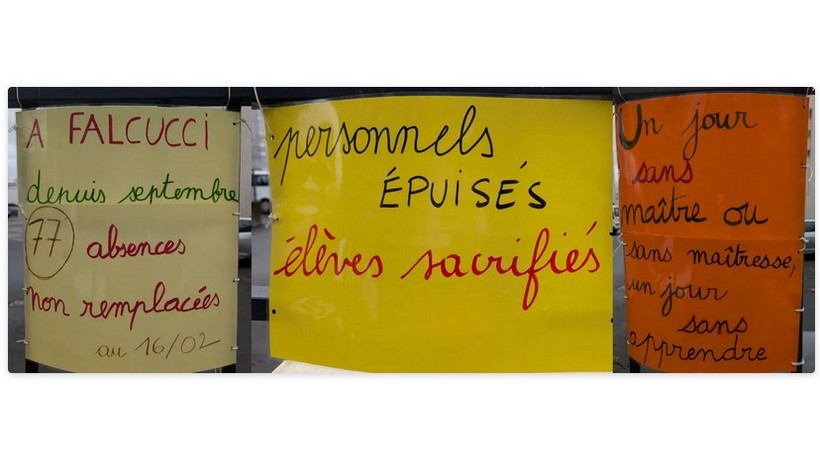 A FALCUCCi
depuis septembre
77 absences
non remplacées
au 16/02
personnels
ÉPUISÉS
élèves sacrifiés
Un jour
sans
maître ou
sans maîtresse,
un jour
sans
apprendre